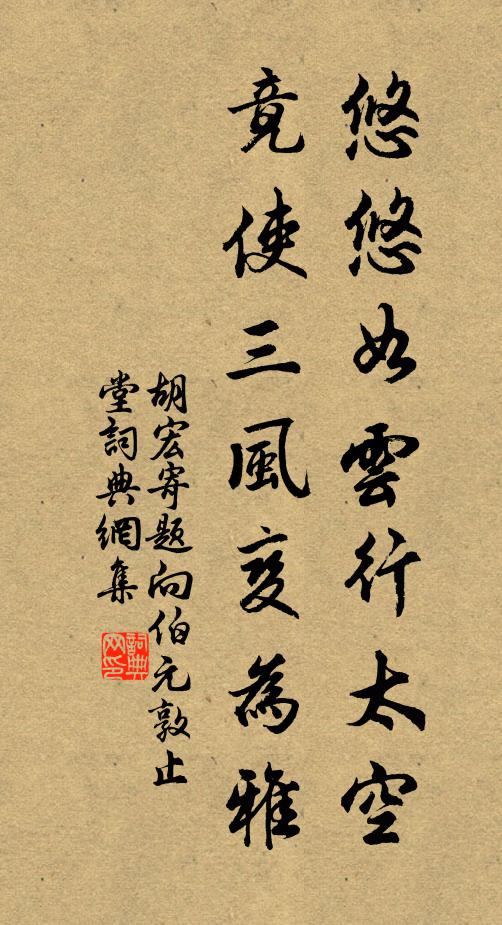 悠悠如雲行太空
竟使三風变為雅
胡宏寄題向伯元敦止
堂詞典網集
詞典
网印